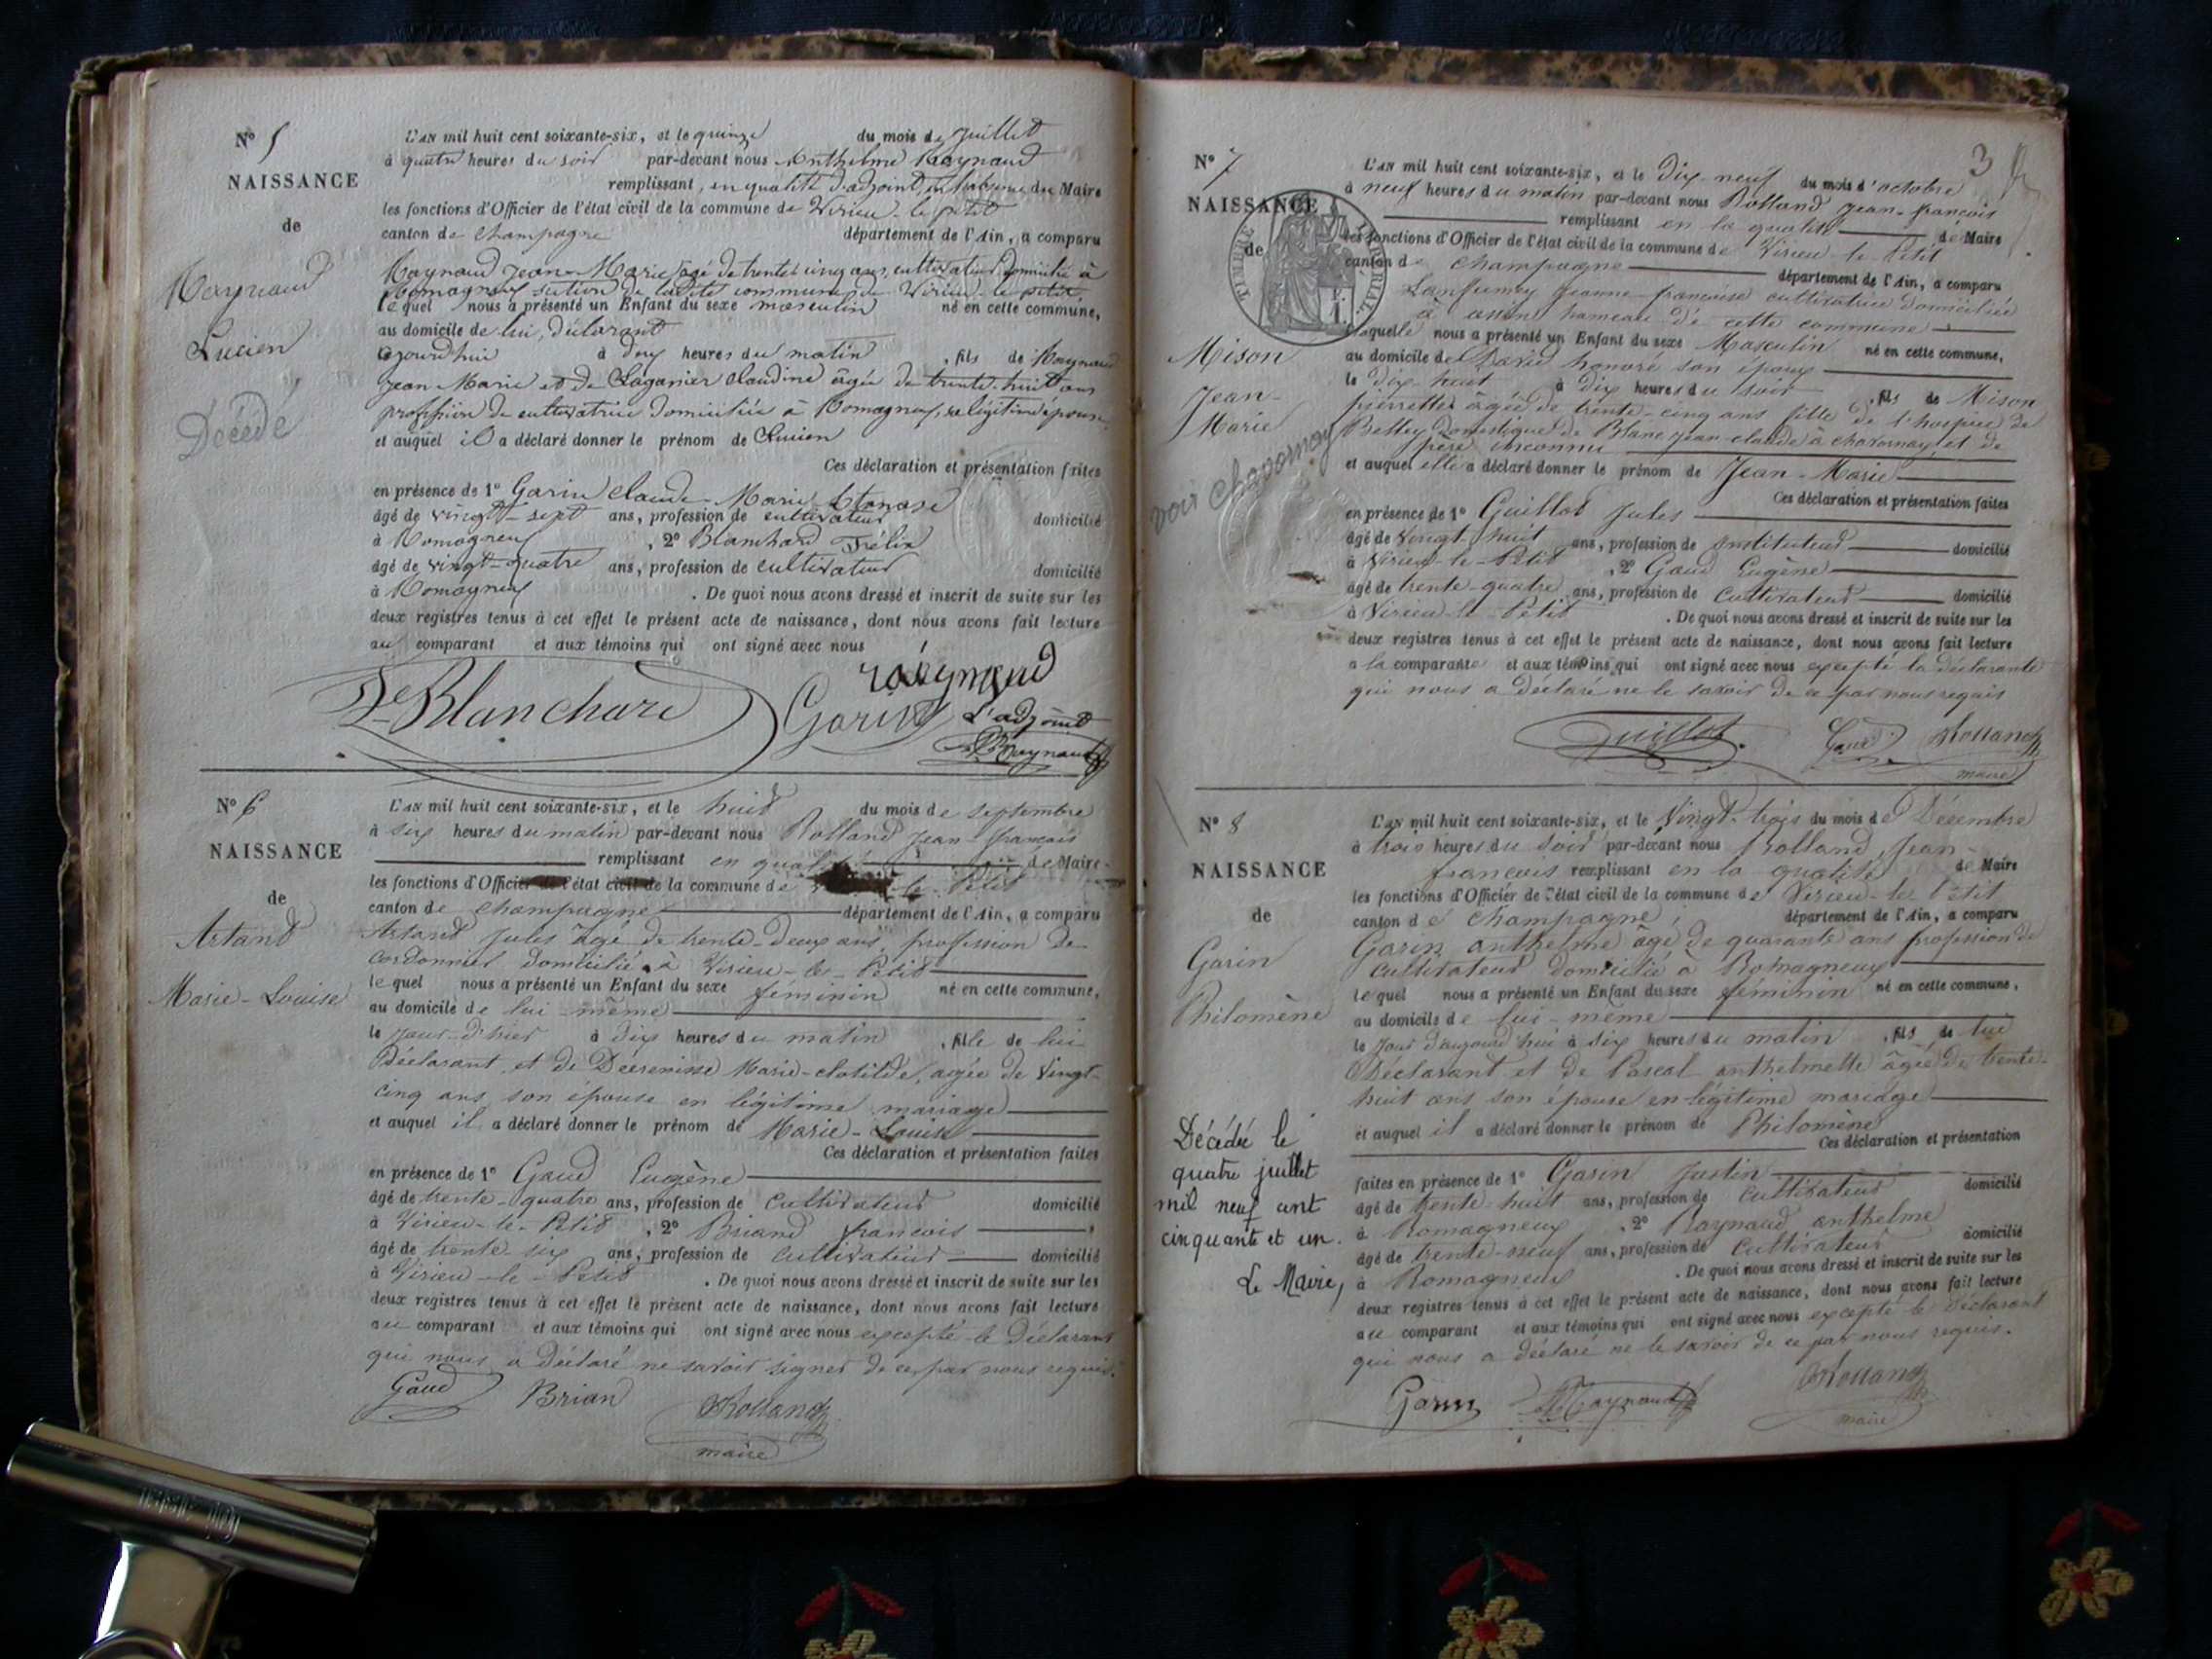 N° 5
NAISSANCE
de
Raynaud
Lucien
Décédé
L'AN mil huit cent soixante-six, et le quinze du mois de juillet
à quatre heures du soir par-devant nous Anthelme Raynaud
remplissant, en qualité d'adjoint, en l'absence du Maire
les fonctions d'Officier de l'état civil de la commune de Virieu-le-petit
canton de Champagne département de l'Ain, a comparu
Raynaud Jean-Marie âgé de trente cinq ans, cultivateur domicilié à
Romagneux section de ladite commune de Virieu-le-petit
lequel nous a présenté un Enfant du sexe masculin né en cette commune,
au domicile de lui, déclarant
aujourd'hui à deux heures du matin, fils de Raynaud
Jean Marie et de Claudine âgée de trente-huit ans
profession de cultivatrice domiciliée à Romagneux, sa légitime épouse
et auquel il a déclaré donner le prénom de Lucien
Ces déclaration et présentation faites
en présence de 1° Garin Claude-Marie
âgé de vingt-sept ans, profession de cultivateur domicilié
à Romagneux, 2° Blanchard Félix
âgé de vingt-quatre ans, profession de cultivateur domicilié
à Romagneux. De quoi nous avons dressé et inscrit de suite sur les
deux registres tenus à cet effet le présent acte de naissance, dont nous avons fait lecture
au comparant et aux témoins qui ont signé avec nous
raynaud
Blanchard Garin L'adjoint
Raynaud
N° 6
NAISSANCE
de
Artand
Marie-Louise
L'AN mil huit cent soixante-six, et le huit du mois de septembre
à six heures du matin par-devant nous Rolland Jean-françois
remplissant en qualité de Maire
les fonctions d'Officier de l'état civil de la commune de le-Petit
canton de Champagne département de l'Ain, a comparu
Artand Jules âgé de trente-deux ans, profession de
cordonnier domicilié à Virieu-le-Petit
lequel nous a présenté un Enfant du sexe féminin né en cette commune,
au domicile de lui-même
le jour d'hier à dix heures du matin, fille de lui
Déclarant et de Marie-Clotilde, agée de vingt-
cinq ans, son épouse en légitime mariage
et auquel il a déclaré donner le prénom de Marie-Louise
Ces déclaration et présentation faites
en présence de 1° Gaud Eugène
âgé de trente-quatre ans, profession de cultivateur domicilié
à Virieu-le-Petit, 2° Briand françois
âgé de trente-six ans, profession de cultivateur domicilié
à Virieu-le-Petit. De quoi nous avons dressé et inscrit de suite sur les
deux registres tenus à cet effet le présent acte de naissance, dont nous avons fait lecture
au comparant et aux témoins qui ont signé avec nous excepté le Déclarant
qui nous a déclaré ne savoir signer de ce par nous requis.
Gaud Brian Rolland
maire
3
N° 7
NAISSANCE
de
TIMBRE IMPÉRIAL
Mison
Jean-
Marie
voir chavornay
L'AN mil huit cent soixante-six, et le dix-neuf du mois d'octobre
à neuf heures du matin par-devant nous Rolland Jean-françois
remplissant en la qualité de Maire
les fonctions d'Officier de l'état civil de la commune de Virieu-le-Petit
canton de Champagne département de l'Ain, a comparu
Lanfumey Jeanne-françoise cultivatrice domiciliée
à assin hameau de cette commune
laquelle nous a présenté un Enfant du sexe Masculin né en cette commune,
au domicile de David honoré son époux
le dix-huit à dix heures du soir, fils de Mison
pierrette âgée de trente-cinq ans fille de l'hospice de
Belley domestique de Blanc Jean-claude à chavornay, et de
père inconnu
et auquel elle a déclaré donner le prénom de Jean-Marie
Ces déclaration et présentation faites
en présence de 1° Guillot Jules
âgé de vingt-huit ans, profession de Instituteur domicilié
à Virieu-le-Petit, 2° Gaud Eugène
âgé de trente-quatre ans, profession de cultivateur domicilié
à Virieu-le-Petit. De quoi nous avons dressé et inscrit de suite sur les
deux registres tenus à cet effet le présent acte de naissance, dont nous avons fait lecture
a la comparante et aux témoins qui ont signé avec nous excepté la déclarante
qui nous a déclaré ne le savoir de ce par nous requis
Guillot Gaud Rolland
maire
N° 8
NAISSANCE
de
Garin
Philomène
Décédée le
quatre juillet
mil neuf cent
cinquante et un.
Le Maire,
L'AN mil huit cent soixante-six, et le Vingt-trois du mois de Décembre
à trois heures du soir par-devant nous Rolland Jean-
françois remplissant en la qualité de Maire
les fonctions d'Officier de l'état civil de la commune de Virieu-le-Petit
canton de Champagne, département de l'Ain, a comparu
Garin anthelme âgé de quarante ans profession de
cultivateur domicilié à Romagneux
lequel nous a présenté un Enfant du sexe féminin né en cette commune,
au domicile de lui-même
le jour d'aujourd'hui à six heures du matin, fils de lui
Déclarant et de Pascal anthelmette âgée de trente-
huit ans son épouse en légitime mariage
et auquel il a déclaré donner le prénom de Philomène
Ces déclaration et présentation
faites en présence de 1° Garin Justin
âgé de trente-huit ans, profession de cultivateur domicilié
à Romagneux, 2° Raynaud anthelme
âgé de trente-neuf ans, profession de cultivateur domicilié
à Romagneux. De quoi nous avons dressé et inscrit de suite sur les
deux registres tenus à cet effet le présent acte de naissance, dont nous avons fait lecture
au comparant et aux témoins qui ont signé avec nous excepté le déclarant
qui nous a déclaré ne le savoir de ce par nous requis.
Garin Raynaud Rolland
maire